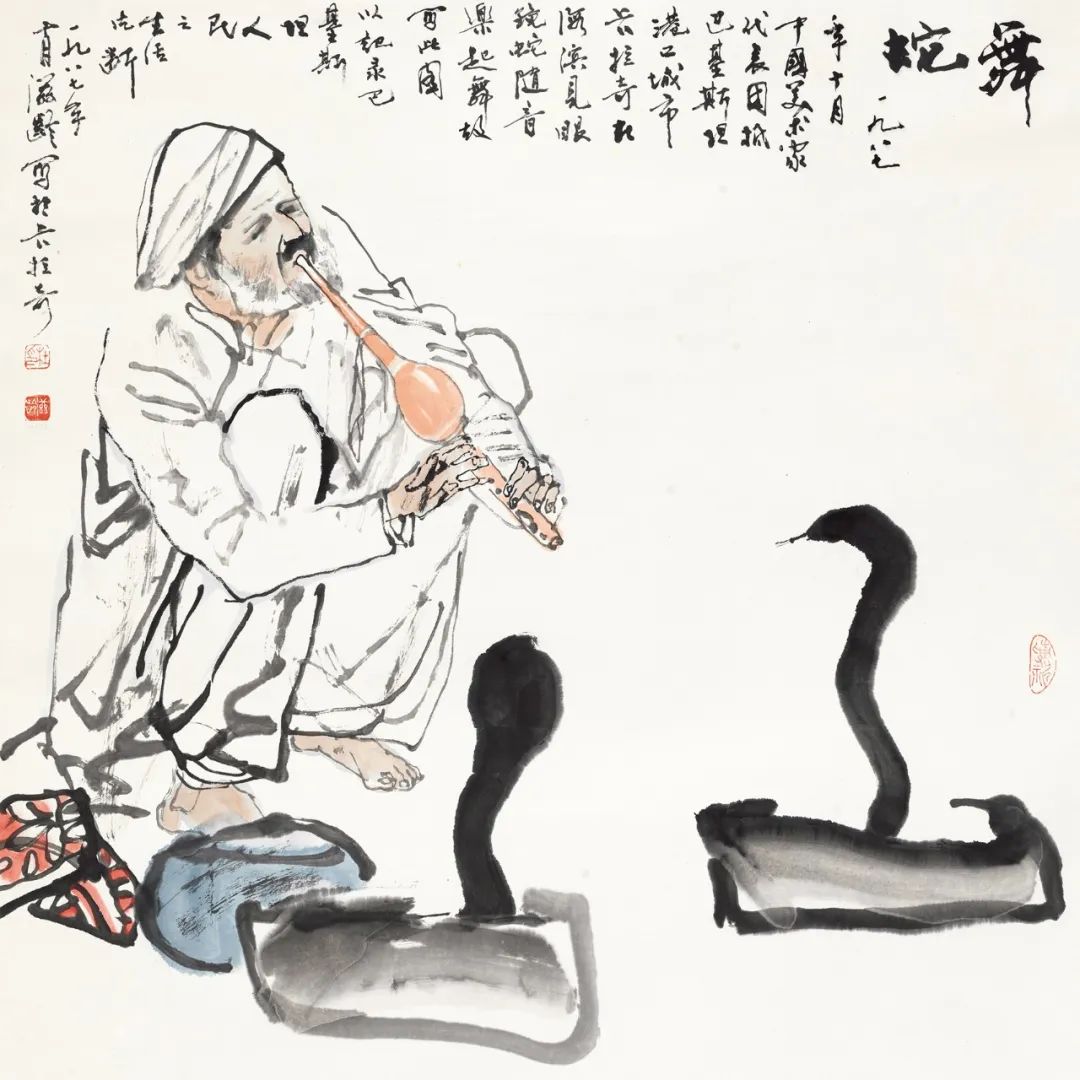 舞蛇
一九八七
年十月
中國美术家
代表团抵
巴基斯坦
港口城市
卡拉奇在
海滨見眼
镜蛇随音
樂起舞故
写此图
以記录巴
基斯
坦
人
民
之
生活
片断
一九八七年
十月滋齡写於卡拉奇